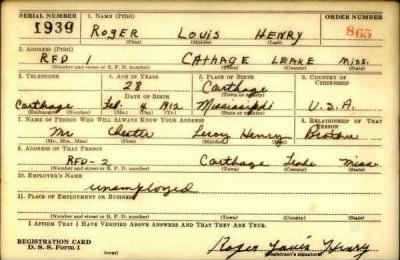 SERIAL NUMBER 1. NAME (Print) ORDER NUMBER
1939 ROGER LOUIS HENRY 865
(First) (Middle) (Last)
2. ADDRESS (Print)
RFD 1 CATHAGE LEAKE Miss.
(Number and street or R. F. D. number) (Town) (County) (State)
3. TELEPHONE 4. AGE IN YEARS 5. PLACE OF BIRTH 6. COUNTRY OF CITIZENSHIP
28 Carthage
DATE OF BIRTH (Town or county)
Carthage Feb. 4 1912 Mississippi U.S.A.
(Exchange) (Number) (Mo.) (Day) (Yr.) (State or country)
7. NAME OF PERSON WHO WILL ALWAYS KNOW YOUR ADDRESS 8. RELATIONSHIP OF THAT PERSON
Mr Chester Leroy Henry Brother
(Mr., Mrs., Miss) (First) (Middle) (Last)
9. ADDRESS OF THAT PERSON
RFD-2 Carthage Leake Miss
(Number and street or R. F. D. number) (Town) (County) (State)
10. EMPLOYER'S NAME
unemployed
11. PLACE OF EMPLOYMENT OR BUSINESS
(Number and street or R. F. D. number) (Town) (County) (State)
I AFFIRM THAT I HAVE VERIFIED ABOVE ANSWERS AND THAT THEY ARE TRUE.
REGISTRATION CARD
D. S. S. Form 1 Roger Louis Henry
(Registrant's signature)